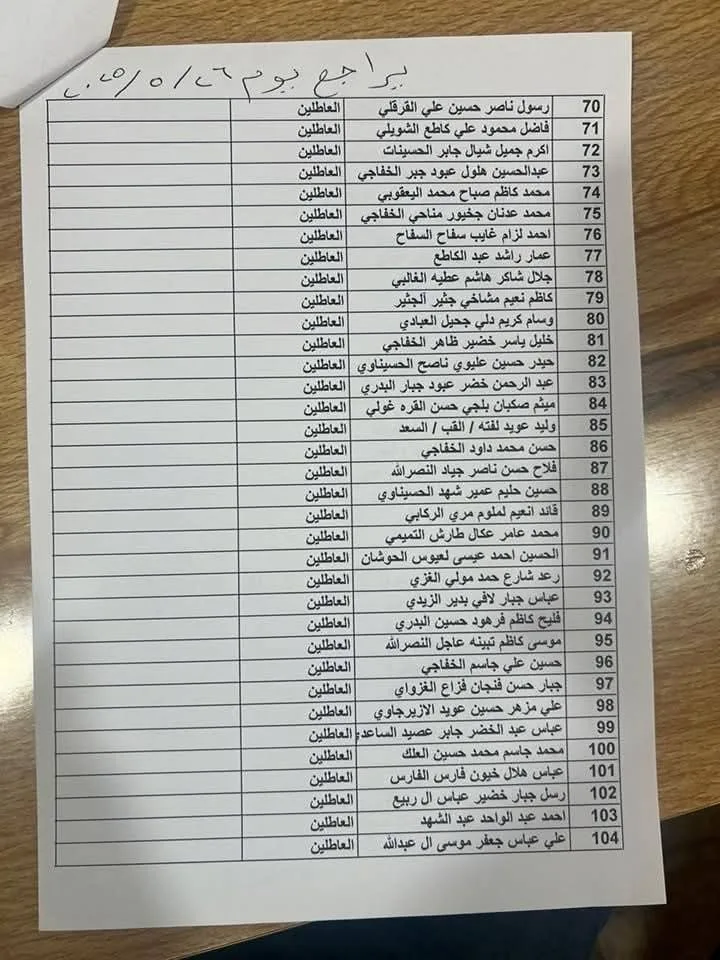 يراجع يوم ٢٦/٥/٢٠٢٥
70 رسول ناصر حسين علي القرقلي العاطلين
71 فاضل محمود علي كاطع الشويلي العاطلين
72 اكرم جميل شيال جابر الحسينات العاطلين
73 عبدالحسين هلول عبود جبر الخفاجي العاطلين
74 محمد كاظم صباح محمد اليعقوبي العاطلين
75 محمد عدنان جخيور مناحي الخفاجي العاطلين
76 احمد لزام غايب سفاح السفاح العاطلين
77 عمار راشد عبد الكاطع العاطلين
78 جلال شاكر هاشم عطيه الغالبي العاطلين
79 كاظم نعيم مشاخي جثير الجثير العاطلين
80 وسام كريم دلي جحيل العبادي العاطلين
81 خليل ياسر خضير ظاهر الخفاجي العاطلين
82 حيدر حسين عليوي ناصح الحسيناوي العاطلين
83 عبد الرحمن خضر عبود جبار البدري العاطلين
84 ميثم صكبان بلجي حسن القره غولي العاطلين
85 وليد عويد لفته / القب / السعد العاطلين
86 حسن محمد داود الخفاجي العاطلين
87 فلاح حسن ناصر جياد النصرالله العاطلين
88 حسين حليم عمير شهد الحسيناوي العاطلين
89 قائد انعيم لملوم مري الركابي العاطلين
90 محمد عامر عكال طارش التميمي العاطلين
91 الحسين احمد عيسى لعيوس الحوشان العاطلين
92 رعد شارع حمد مولي الغزي العاطلين
93 عباس جبار لافي بدير الزيدي العاطلين
94 فليح كاظم فرهود حسين البدري العاطلين
95 موسى كاظم تبينه عاجل النصرالله العاطلين
96 حسين علي جاسم الخفاجي العاطلين
97 جبار حسن فنجان فزاع الغزواي العاطلين
98 علي مزهر حسين عويد الازيرجاوي العاطلين
99 عباس عبد الخضر جابر عصيد الساعدي العاطلين
100 محمد جاسم محمد حسين العلك العاطلين
101 عباس هلال خيون فارس الفارس العاطلين
102 رسل جبار خضير عباس ال ربيع العاطلين
103 احمد عبد الواحد عبد الشهد العاطلين
104 علي عباس جعفر موسى ال عبدالله العاطلين